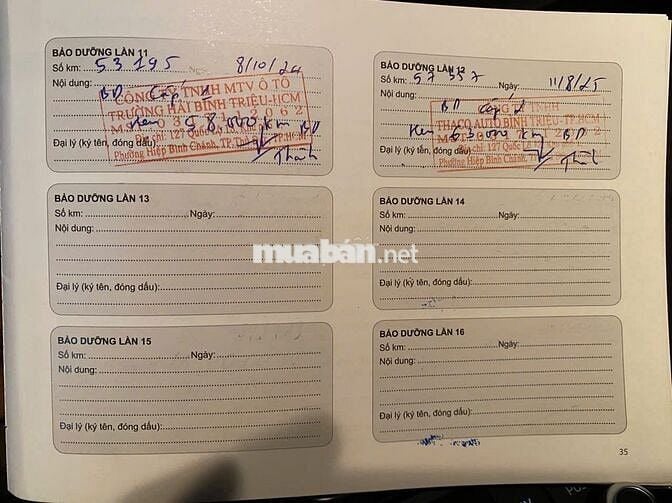 BẢO DƯỠNG LẦN 11
Số km: 53795 Ngày: 8/10/24
Nội dung: BD Cấp 1
CÔNG TY TNHH MTV Ô TÔ
TRƯỜNG HẢI BÌNH TRIỆU-HCM
Hẹn 58.000 km BD
Địa chỉ: 127 Quốc Lộ 13
Phường Hiệp Bình Chánh, TP.
Đại lý (ký tên, đóng dấu)
Thành
BẢO DƯỠNG LẦN 12
Số km: 57357 Ngày: 11/8/25
Nội dung: BD Cấp 1
TNHH
THACO AUTO BÌNH TRIỆU-TP.HCM
Hẹn 63.000 km BD
Địa chỉ: 127 Quốc Lộ
Phường Hiệp Bình Chánh,
Đại lý (ký tên, đóng dấu)
Thành
BẢO DƯỠNG LẦN 13
Số km: Ngày:
Nội dung:
Đại lý (ký tên, đóng dấu):
BẢO DƯỠNG LẦN 14
Số km: Ngày:
Nội dung:
Đại lý (ký tên, đóng dấu):
muaban.net
BẢO DƯỠNG LẦN 15
Số km: Ngày:
Nội dung:
Đại lý (ký tên, đóng dấu):
BẢO DƯỠNG LẦN 16
Số km: Ngày:
Nội dung:
Đại lý (ký tên, đóng dấu):
35